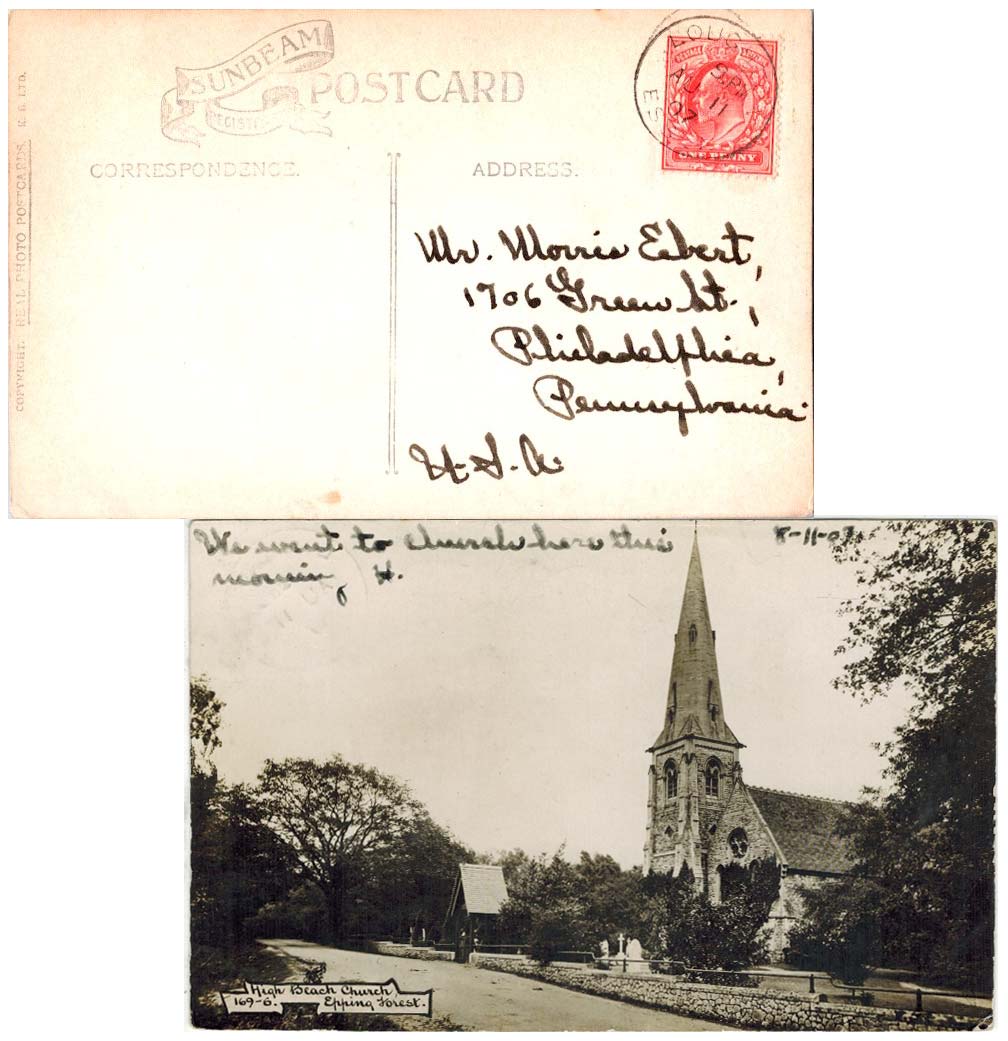 SUNBEAM
POSTCARD
CORRESPONDENCE.
ADDRESS.
COPYRIGHT. REAL PHOTO POSTCARDS. K. & LTD.
AU 11
07
ES
ONE PENNY
Mr. Morris Eibert,
1706 Green St.,
Philadelphia,
Pennsylvania
U.S.A.
We went to church here this
mornin, H.
8-11-07
High Beach Church,
169-6. Epping Forest.